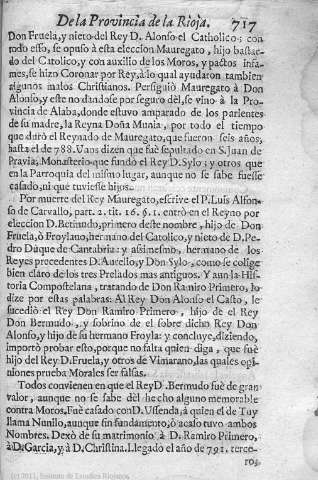 De la Provincia de la Rioja. 717
Don Fruela, y nieto del Rey D. Alonso el Catholico: con
todo esso, se opuso à esta eleccion Mauregato, hijo bastar-
do del Catolico, y con auxilio de los Moros, y pactos infa-
mes, se hizo Coronar por Rey, à lo qual ayudaron tambien
algunos malos Christianos. Persiguiò Mauregato à Don
Alonso, y este no dandose por seguro dèl, se vino à la Pro-
vincia de Alaba, donde estuvo amparado de los parientes
de su madre, la Reyna Doña Munia, por todo el tiempo
que durò el Reynado de Mauregato, que fueron seis años,
hasta el de 788. Vnos dizen que fuè sepultado en S. Juan de
Pravia, Monasterio que fundò el Rey D. Sylo: y otros que
en la Parroquia del mismo lugar, aunque no se sabe fuesse
casado, ni que tuviesse hijos.
Por muerte del Rey Mauregato, escrive el P. Luis Alfon-
so de Carvallo, part. 2. tit. 16. §. 1. entrò en el Reyno por
eleccion D. Bermudo, primero deste nombre, hijo de Don
Fruela, ò Froylano, hermano del Catolico, y nieto de D. Pe-
dro Duque de Cantabria: y assimesmo, hermano de los
Reyes precedentes D. Aurelio, y Don Sylo, como se colige
bien claro de los tres Prelados mas antiguos. Y aun la His-
toria Compostelana, tratando de Don Ramiro Primero, lo
dize por estas palabras: Al Rey Don Alonso el Casto, le
sucediò el Rey Don Ramiro Primero, hijo de el Rey
Don Bermudo, y sobrino de el sobre dicho Rey Don
Alonso, y hijo de su hermano Froyla: y concluye, diziendo,
importò probar esto, porque no falta quien diga, que fuè
hijo del Rey D. Fruela, y otros de Vimarano, las quales opi-
niones prueba Morales ser falsas.
Todos convienen en que el Rey D. Bermudo fuè de gran
valor, aunque no se sabe dèl hecho alguno memorable
contra Moros. Fuè casado con D. Ussenda, à quien el de Tuy
llama Nunilo, aunque sin fundamento, ò acaso tuvo ambos
Nombres. Dexò de su matrimonio à D. Ramiro Primero,
à D. Garcia, y à D. Christina. Llegado el año de 791. terce-
ros.
(c) 2011, Instituto de Estudios Riojanos